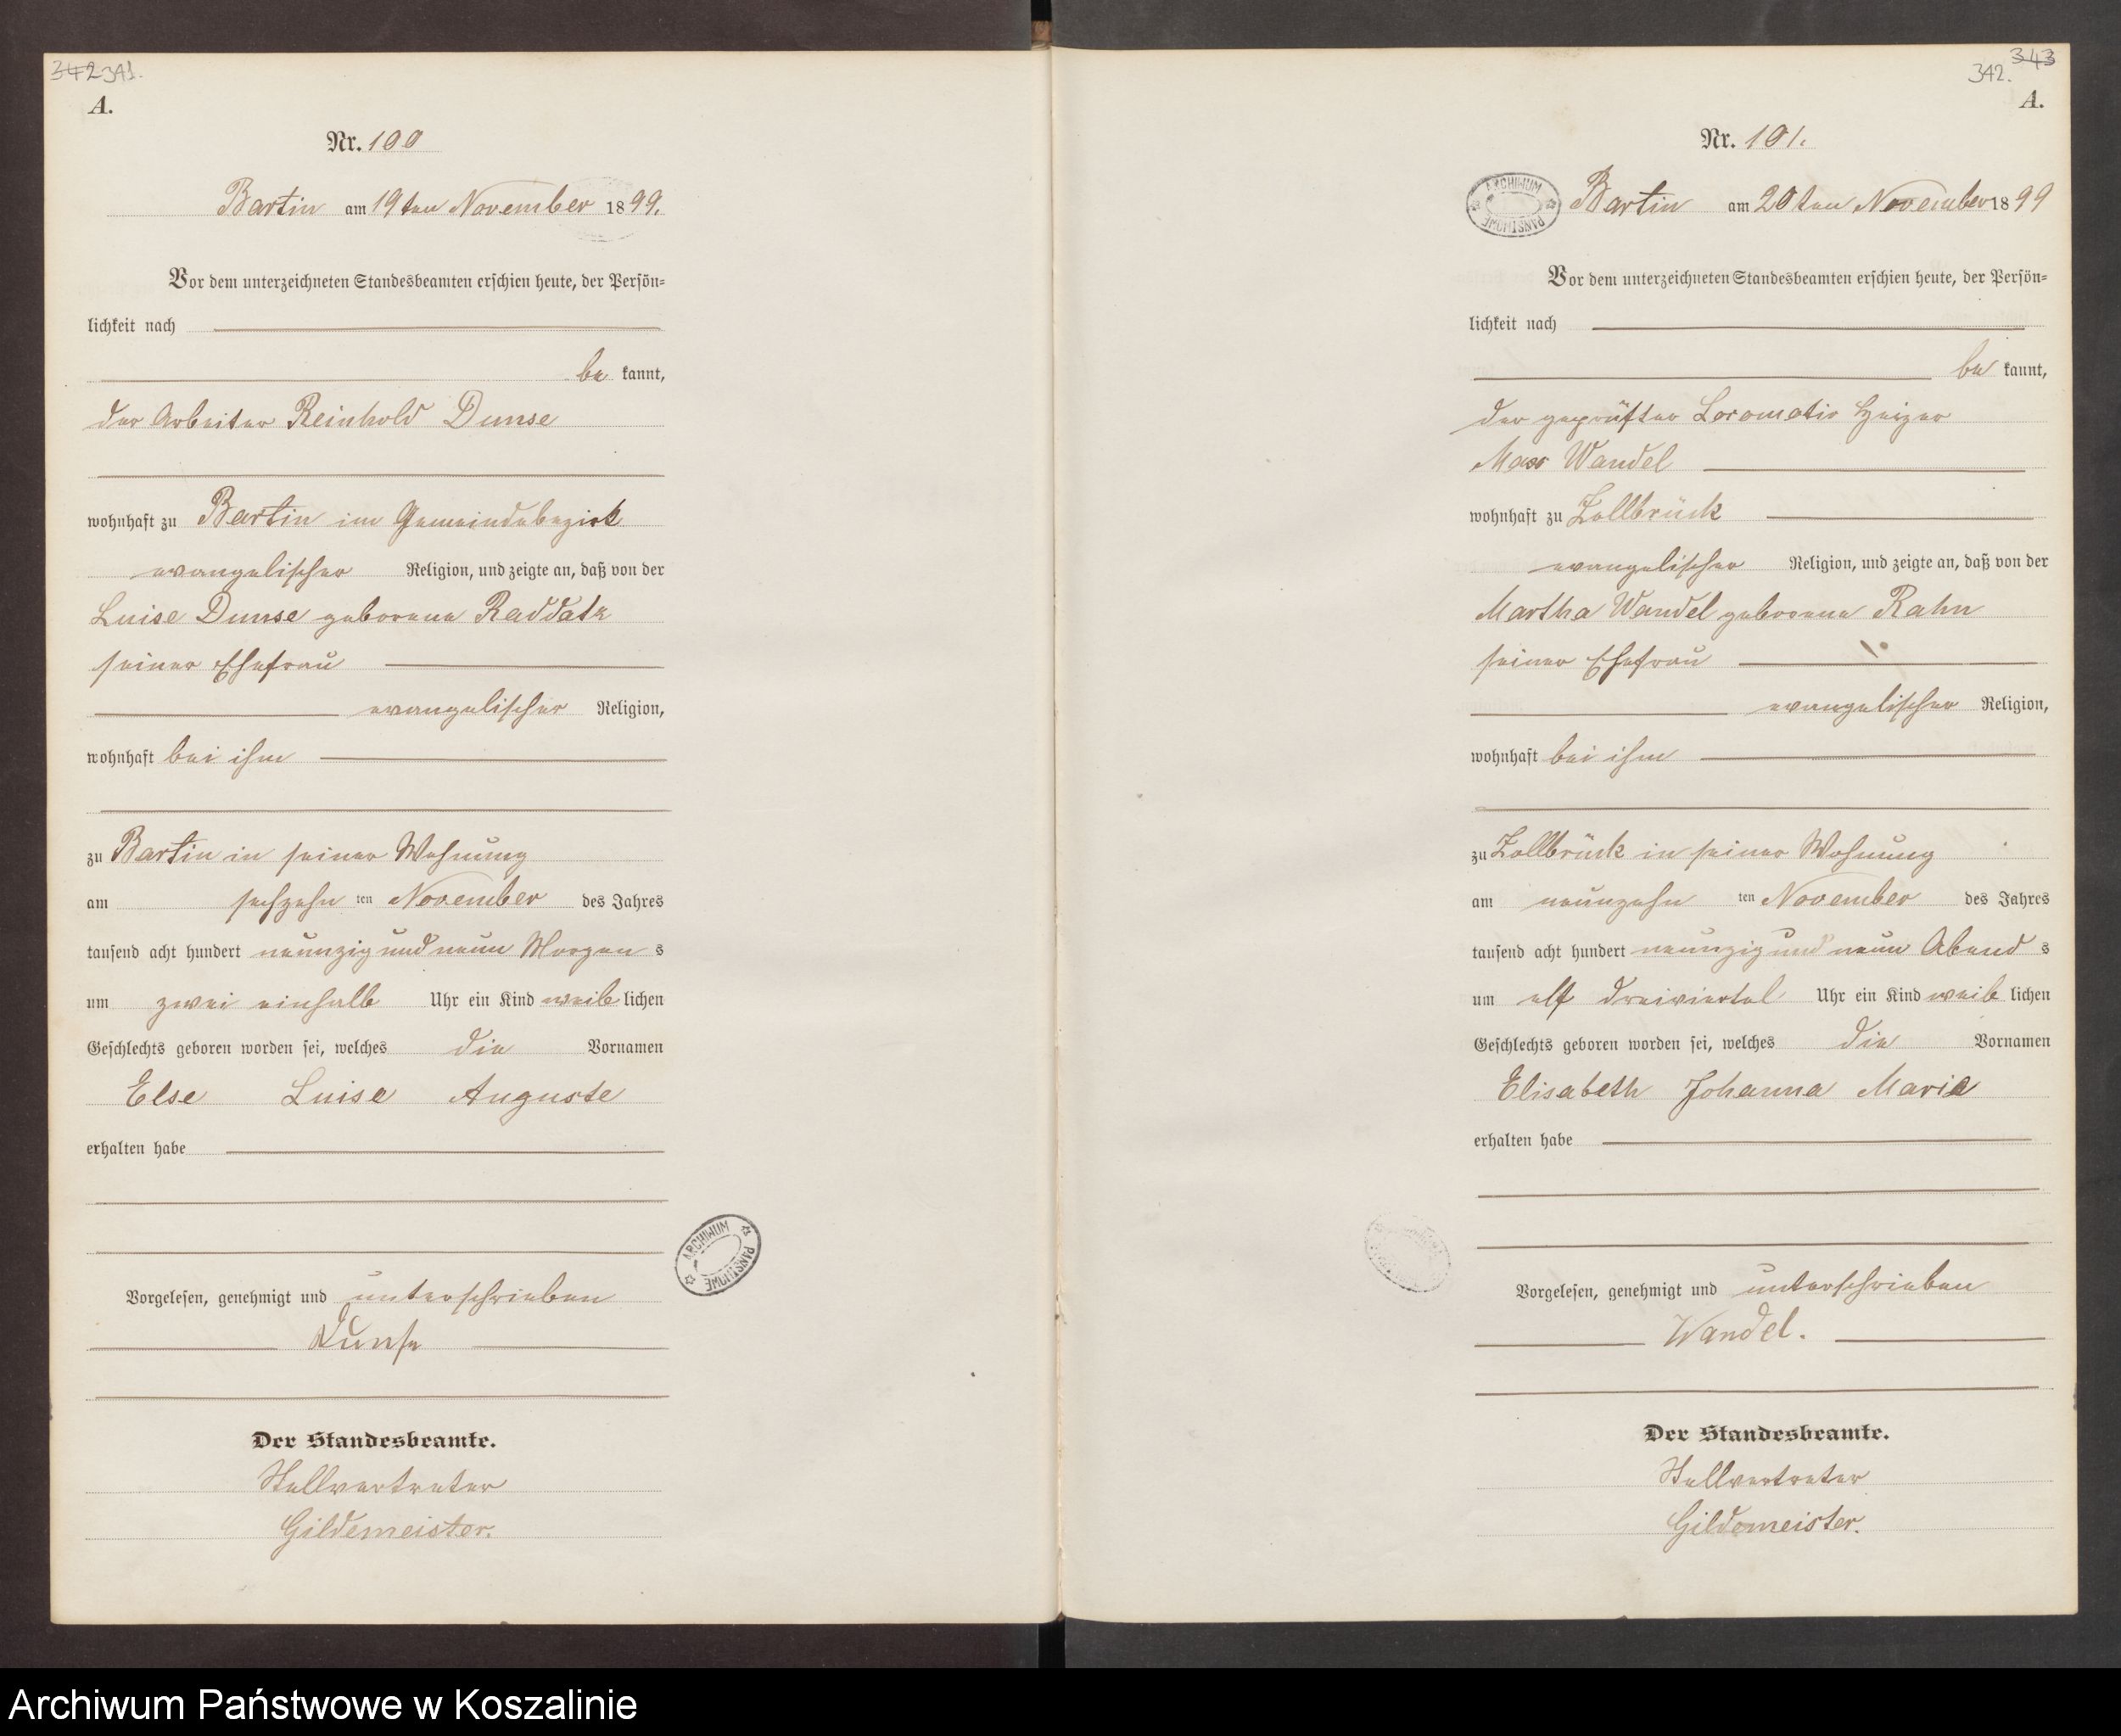 342 341.
A.
Nr. 100
Bartin am 19ten November 1899.
Vor dem unterzeichneten Standesbeamten erschien heute, der Persön=
lichkeit nach
be kannt,
der Arbeiter Reinhold Dunse
wohnhaft zu Bartin im Gemeindebezirk
evangelischer Religion, und zeigte an, daß von der
Luise Dunse geborene Raddatz
seiner Ehefrau
evangelischer Religion,
wohnhaft bei ihm
zu Bartin in seiner Wohnung
am sechzehn ten November des Jahres
tausend acht hundert neunzig und neun Morgen s
um zwei einhalb Uhr ein Kind weib lichen
Geschlechts geboren worden sei, welches die Vornamen
Else Luise Auguste
erhalten habe
Vorgelesen, genehmigt und unterschrieben
Dunse
Der Standesbeamte.
Stellvertreter
Gildemeister.
ARCHIWUM PAŃSTWOWE
343
342.
A.
Nr. 101.
ARCHIWUM PAŃSTWOWE
Bartin am 20ten November 1899
Vor dem unterzeichneten Standesbeamten erschien heute, der Persön=
lichkeit nach
be kannt,
der geprüfter Locomotiv Heizer
Max Wandel
wohnhaft zu Zollbrück
evangelischer Religion, und zeigte an, daß von der
Martha Wandel geborene Rahn
seiner Ehefrau
evangelischer Religion,
wohnhaft bei ihm
zu Zollbrück in seiner Wohnung
am neunzehn ten November des Jahres
tausend acht hundert neunzig und neun Abend s
um elf dreiviertel Uhr ein Kind weib lichen
Geschlechts geboren worden sei, welches die Vornamen
Elisabeth Johanna Marie
erhalten habe
Vorgelesen, genehmigt und unterschrieben
Wandel.
Der Standesbeamte.
Stellvertreter
Gildemeister.
Archiwum Państwowe w Koszalinie